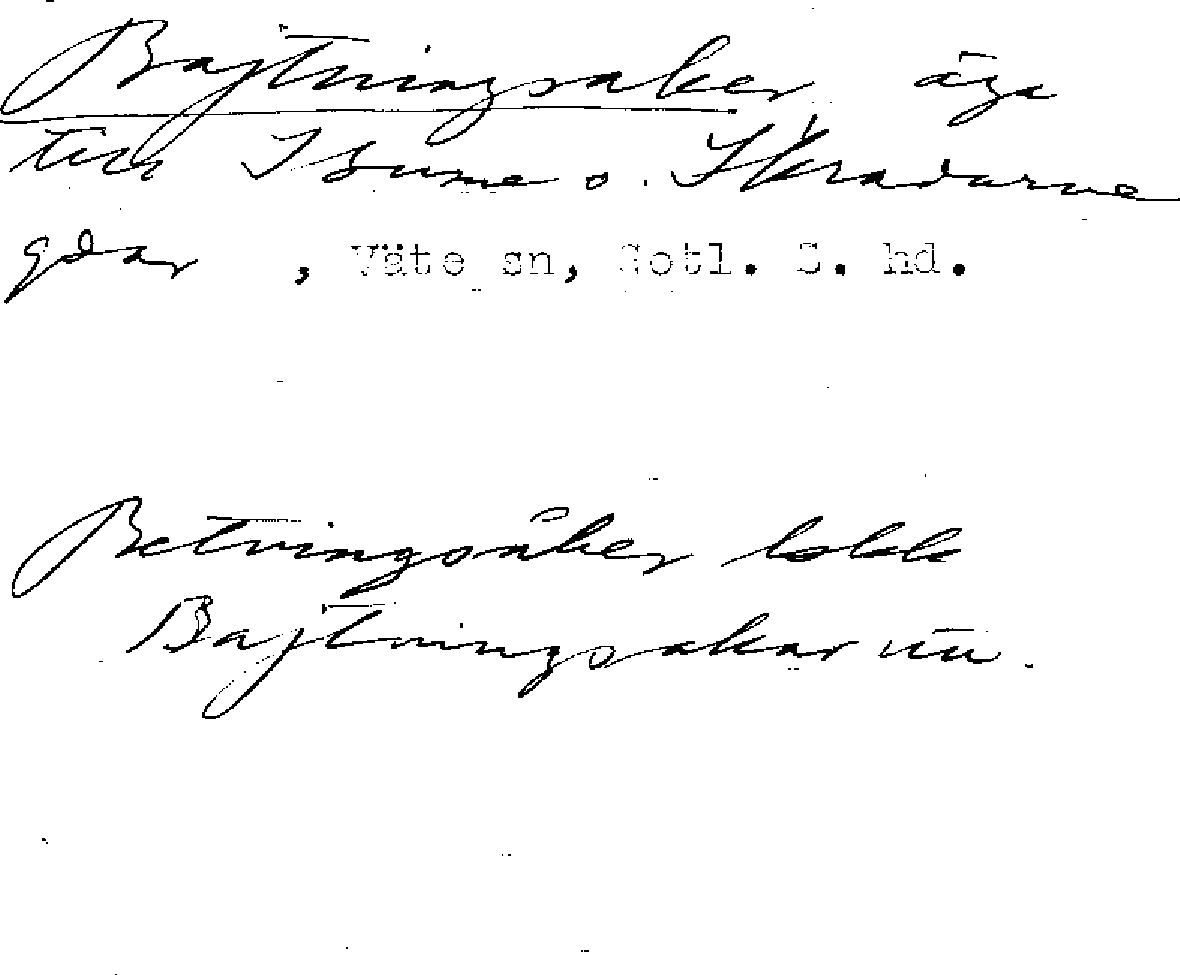 Bajtningsaker äga
till Isume o. Skradarve
gdar , Väte sn, Gotl. S. hd.
Betningsåker lokk
Bajtningsakar uu.